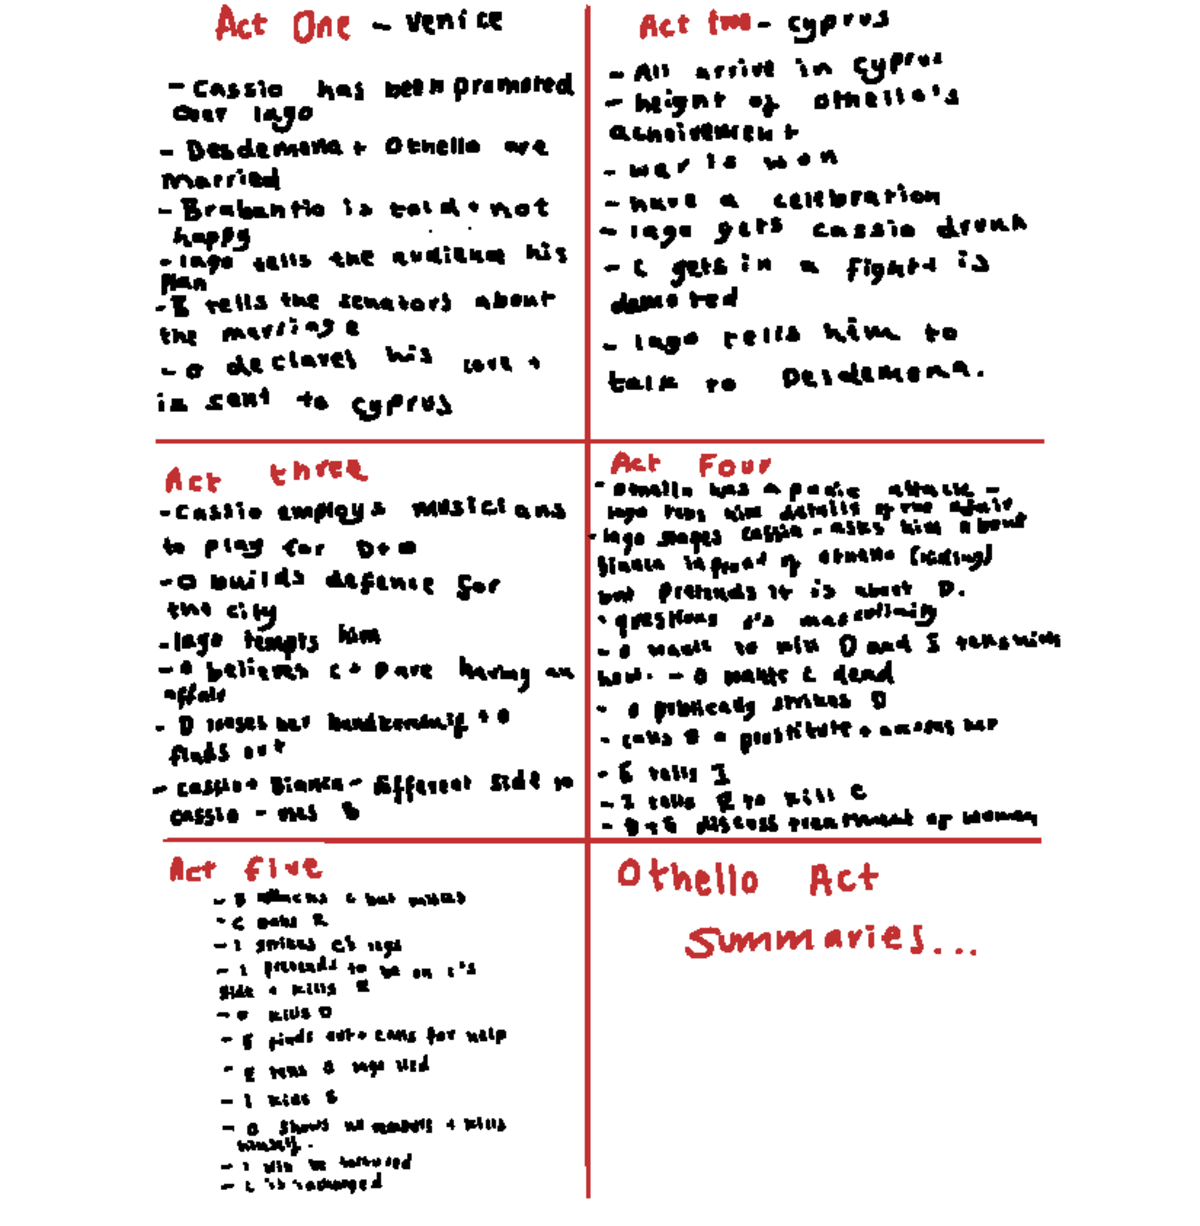 Act One - Venice
- Cassio has been promoted
over Iago
- Desdemona + Othello are
Married
- Brabantio is told + not
happy
- Iago tells the audience his
Plan
- B tells the senators about
the marriage
- O declares his love +
is sent to Cyprus
Act two - Cyprus
- All arrive in Cyprus
- height of Othello's
- war is won
- have a celibration
- Iago gets Cassio drunk
- C gets in a fight + is
demoted
- Iago tells him to
talk to Desdemona.
Act three
- Cassio employs musicians
to play for D + O
- O builds defence for
the city
- Iago tempts him
- O believes C + D are having an
affair
- D looses her handkerchief + O
finds out
- Cassio + Bianca - different side to
Cassio - uses B
Act Four
- Othello has a panic attack -
Iago tells him details of the affair
- Iago stages Cassio - asks him about
Bianca infront of Othello (hiding)
but pretends it is about D.
- questions O's masculinity
- O wants to kill D and I tells him
how. - O wants C dead
- O publically strikes D
- calls D a prostitute + accuses her
- E tells I
- I tells R to kill C
- D + E discuss treatment of women
Act five
- R attacks C but misses
- C stabs R
- I strikes C's legs
- I pretends to be on C's
side + kills R
- O kills D
- E finds out + calls for help
- E tells O Iago lied
- I kills E
- O shows no remorse + kills
himself.
- I will be tortured
- C is
Othello Act
Summaries...